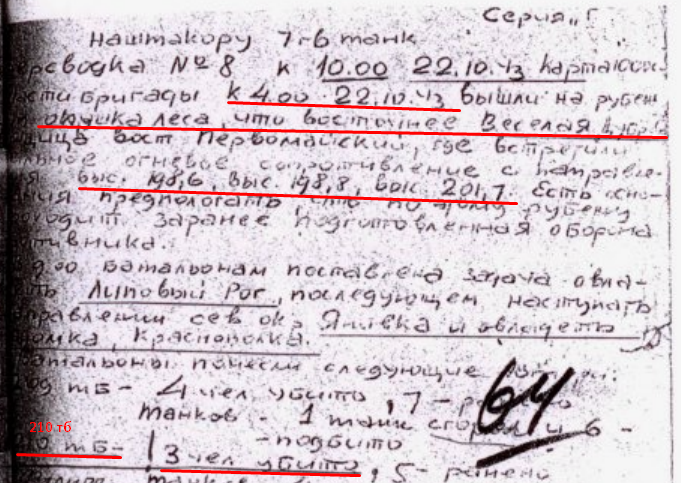 Серия "Г
Наштакору 7 гв танк
сводка №8 к 10.00 22.10.43 карта
части бригады к 4.00 22.10.43 вышли на рубеж
опушка леса, что восточнее Веселая,
вост Первомайский, где встретили
огневое сопротивление с направле-
выс. 198,6, выс. 198,8, выс. 201,7. Есть осно-
предпологать что по этому рубежу
заранее подготовленная оборона
противника.
батальонам поставлена задача овла-
Липовый Рог, последующем наступать
направлении сев ок. Яшивка и овладеть
Краснополка.
батальоны понесли следующие
209 тб - 4 чел. убито, 7 -
64
танков - 1 танк сгорел и 6 -
- подбито
210 тб
210 тб - 3 чел убито, 5 - ранено
танков